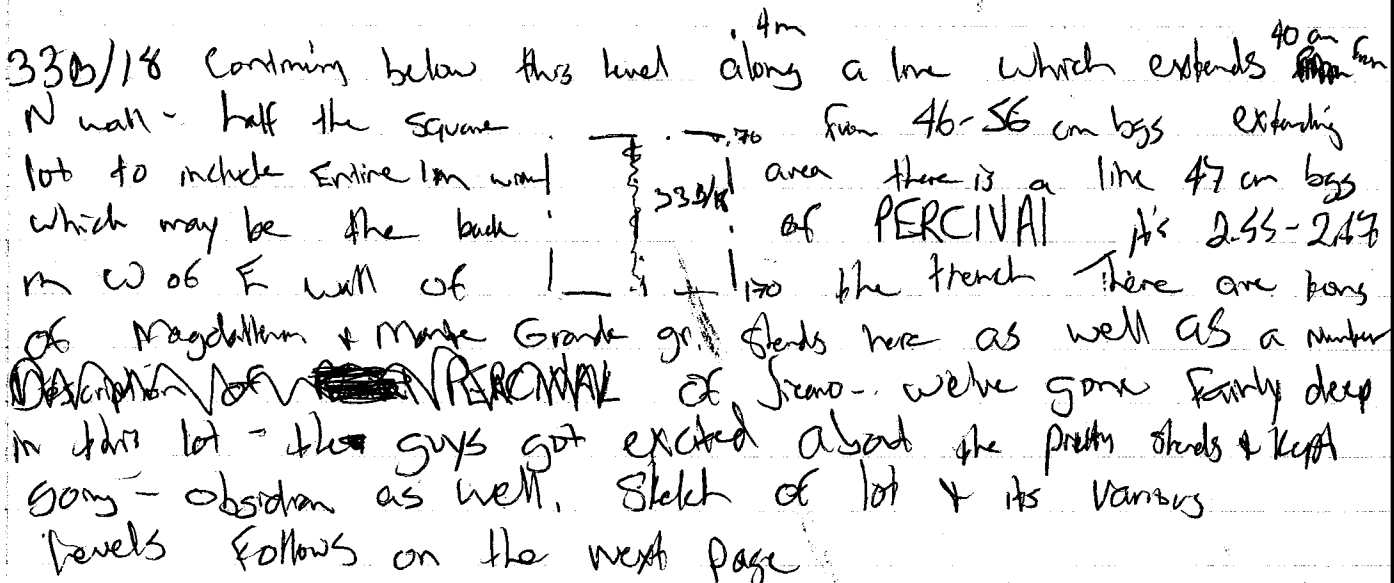 .4m
33B/18 Continuing below this level along a line which extends 40 cm from
N wall - half the square .70 from 46-56 cm bgs extending
lot to include Entire 1m 33B/18 area there is a line 47 cm bgs
which may be the back of PERCIVAL it's 2.55-2.47
m W of E wall of 170 the trench There are
of Magdallena & Monte Grande gr. sherds here as well as a number
Description of PERCIVAL of Jicamo-. we've gone fairly deep
in this lot - the guys got excited about the pretty sherds & kept
going - obsidian as well. Sketch of lot & its various
levels follows on the next page